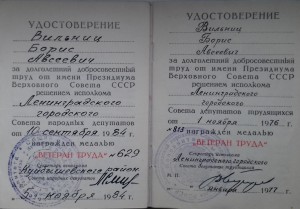 УДОСТОВЕРЕНИЕ
Вильниц
Борис
Авсеевич
за долголетний добросовестный
труд от имени Президиума
Верховного Совета СССР
решением исполкома
Ленинградского
городского
Совета народных депутатов
от 10 сентября 1984 г.
награжден медалью
"ВЕТЕРАН ТРУДА" № 629
Секретарь исполкома
Куйбышевского район
ноября 1984 г.
УДОСТОВЕРЕНИЕ
Вильниц
Борис
Авсеевич
за долголетний добросовестный
труд от имени Президиума
Верховного Совета СССР
решением исполкома
Ленинградского
городского
Совета депутатов трудящихся
от 1 ноября 1976 г.
награжден медалью
"ВЕТЕРАН ТРУДА"
Секретарь исполкома
Ленинградского городского
Совета депутатов трудящихся
М. П.
января 1977 г.